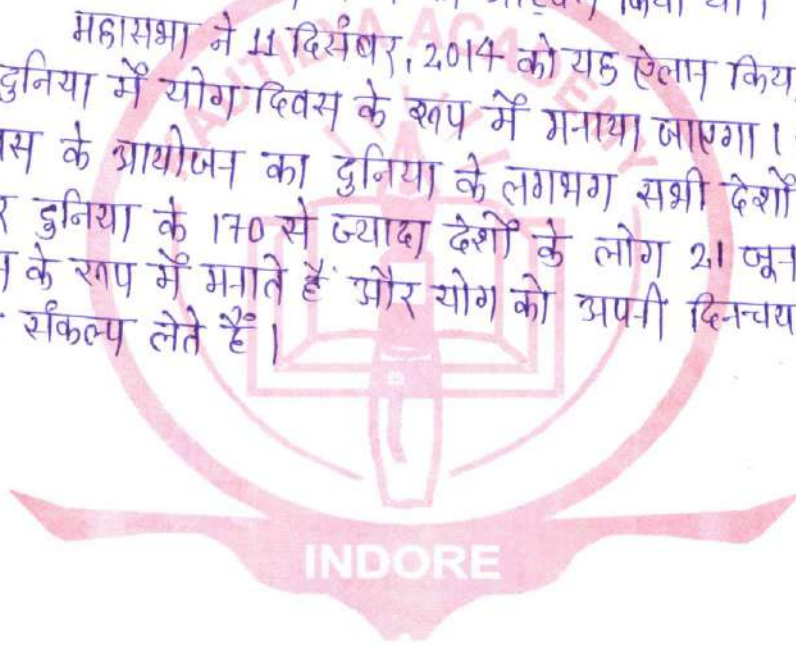 किया था।
महासभा ने 11 दिसंबर, 2014 को यह ऐलान किय
दुनिया में योग दिवस के रूप में मनाया जाएगा।
स के आयोजन का दुनिया के लगभग सभी देशों
र दुनिया के 170 से ज्यादा देशों के लोग 21 जून
न के रूप में मनाते हैं और योग को अपनी दिनचय
संकल्प लेते हैं।
KAUTILYA ACADEMY
INDORE